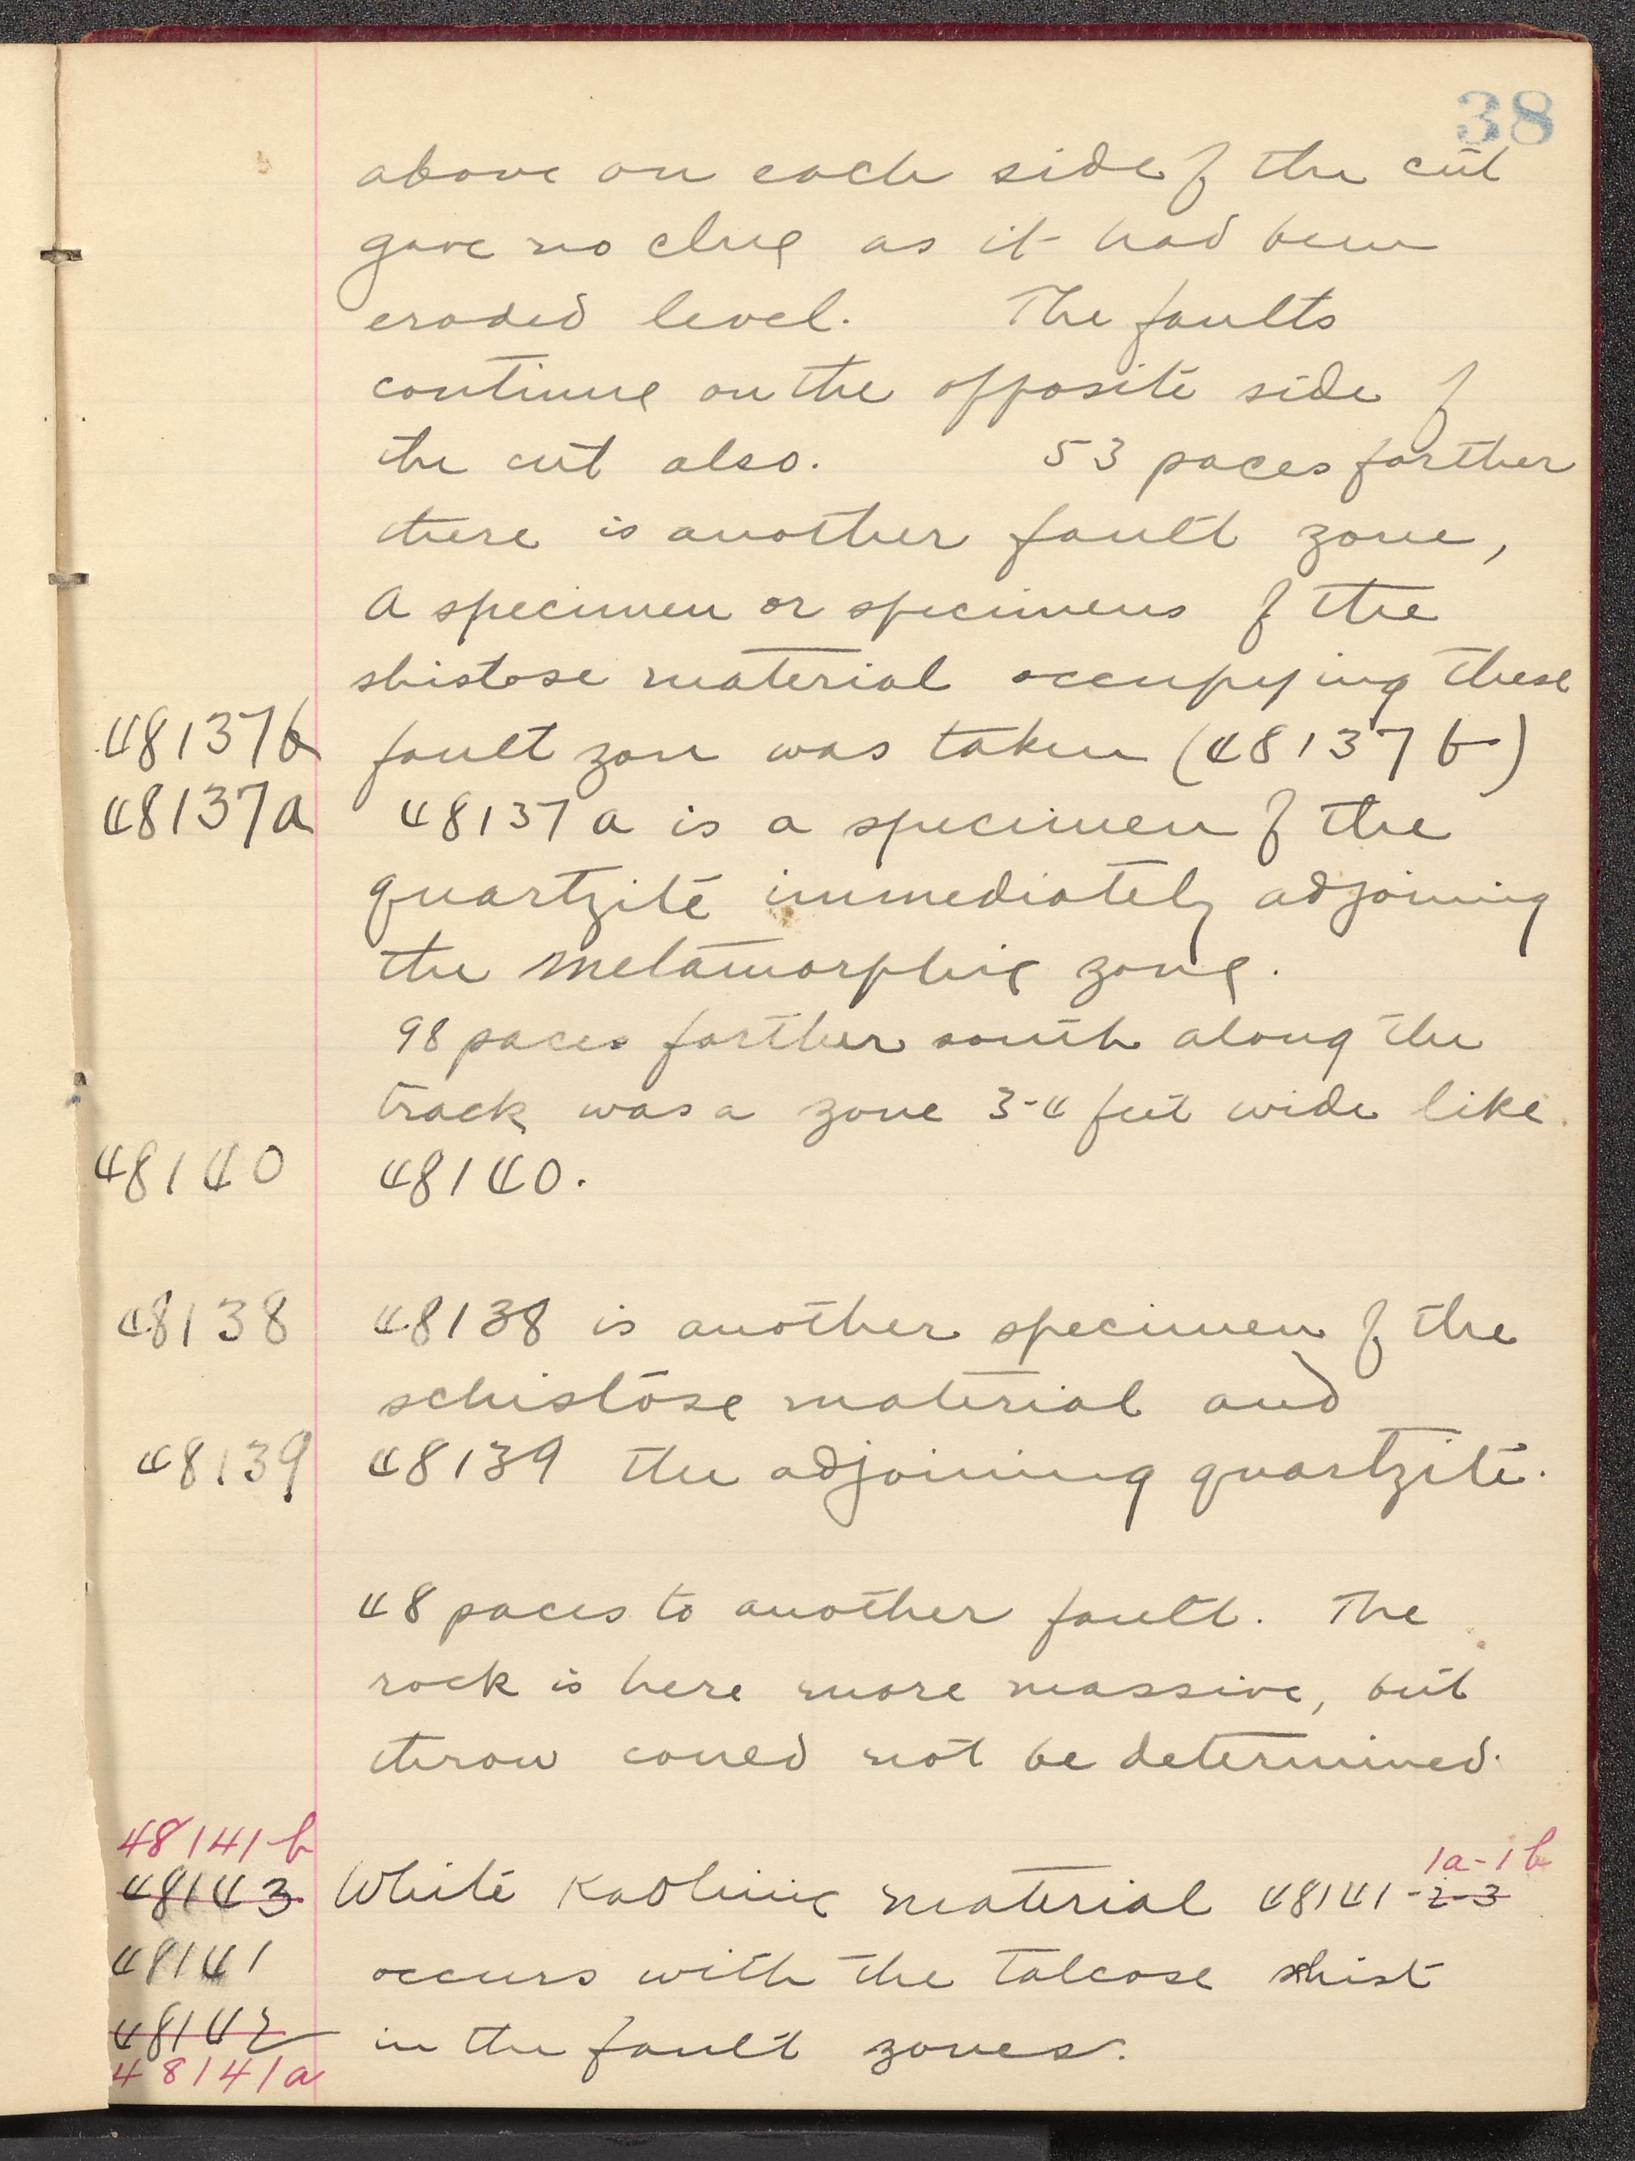 38
above on each side of the cut
gave no clue as it had been
eroded level. The faults
continue on the opposite side of
the cut also. 53 paces farther
there is another fault zone,
A specimen or specimens of the
shistose material occupying these
48137b fault zon was taken (48137b)
48137a 48137a is a specimen of the
quartzite immediately adjoining
the metamorphic zone.
98 paces farther south along the
track was a zone 3-4 feet wide like
48140 48140.
48138 48138 is another specimen of the
schistose material and
48139 48139 the adjoining quartzite.
48 paces to another fault. The
rock is here more massive, but
throw could not be determined.
48141-b 1a-1b
48143 White Kaolinic material 48141-2-3
48141 occurs with the talcose shist
48142 in the fault zones.
48141a